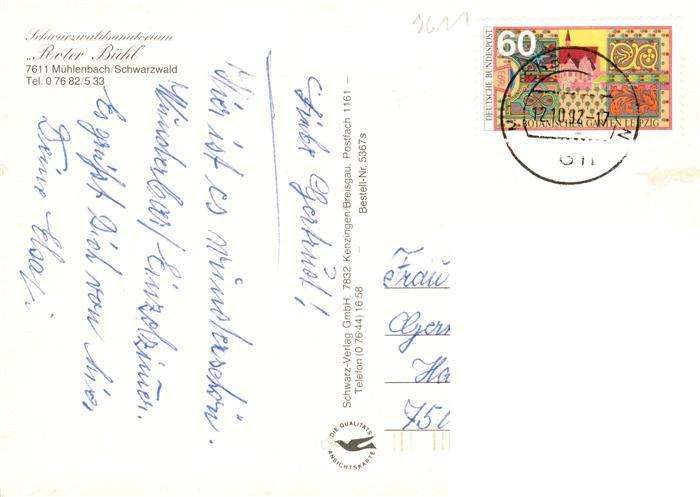 Schwarzwaldsanatorium
„Roter Bühl“
7611 Mühlenbach/Schwarzwald
Tel. 0 76 82/5 33
Liebe Gertrud!
Hier ist es wunderschön.
Wunderbar/Einzelzimmer.
Es grüßt Dich von hier,
Deine Elsa.
Schwarz-Verlag GmbH, 7832 Kenzingen Breisgau, Postfach 1161 –
Telefon (0 76 44) 16 58 – Bestell-Nr. 5367s
DIE QUALITÄTS
ANSICHTSKARTE
DEUTSCHE BUNDESPOST
60
BOTANISCHER GARTEN LEIPZIG
12.10.92-17
Frau
Ha
750